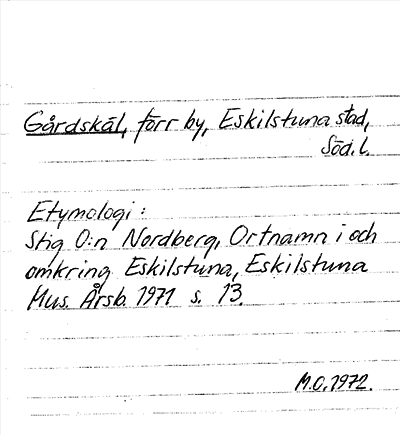 Gårdskäl, förr by, Eskilstuna stad,
Söd. l.
Etymologi:
Stig O:n Nordberg, Ortnamn i och
omkring Eskilstuna, Eskilstuna
Mus. Årsb. 1971 s. 13.
M.O. 1972.